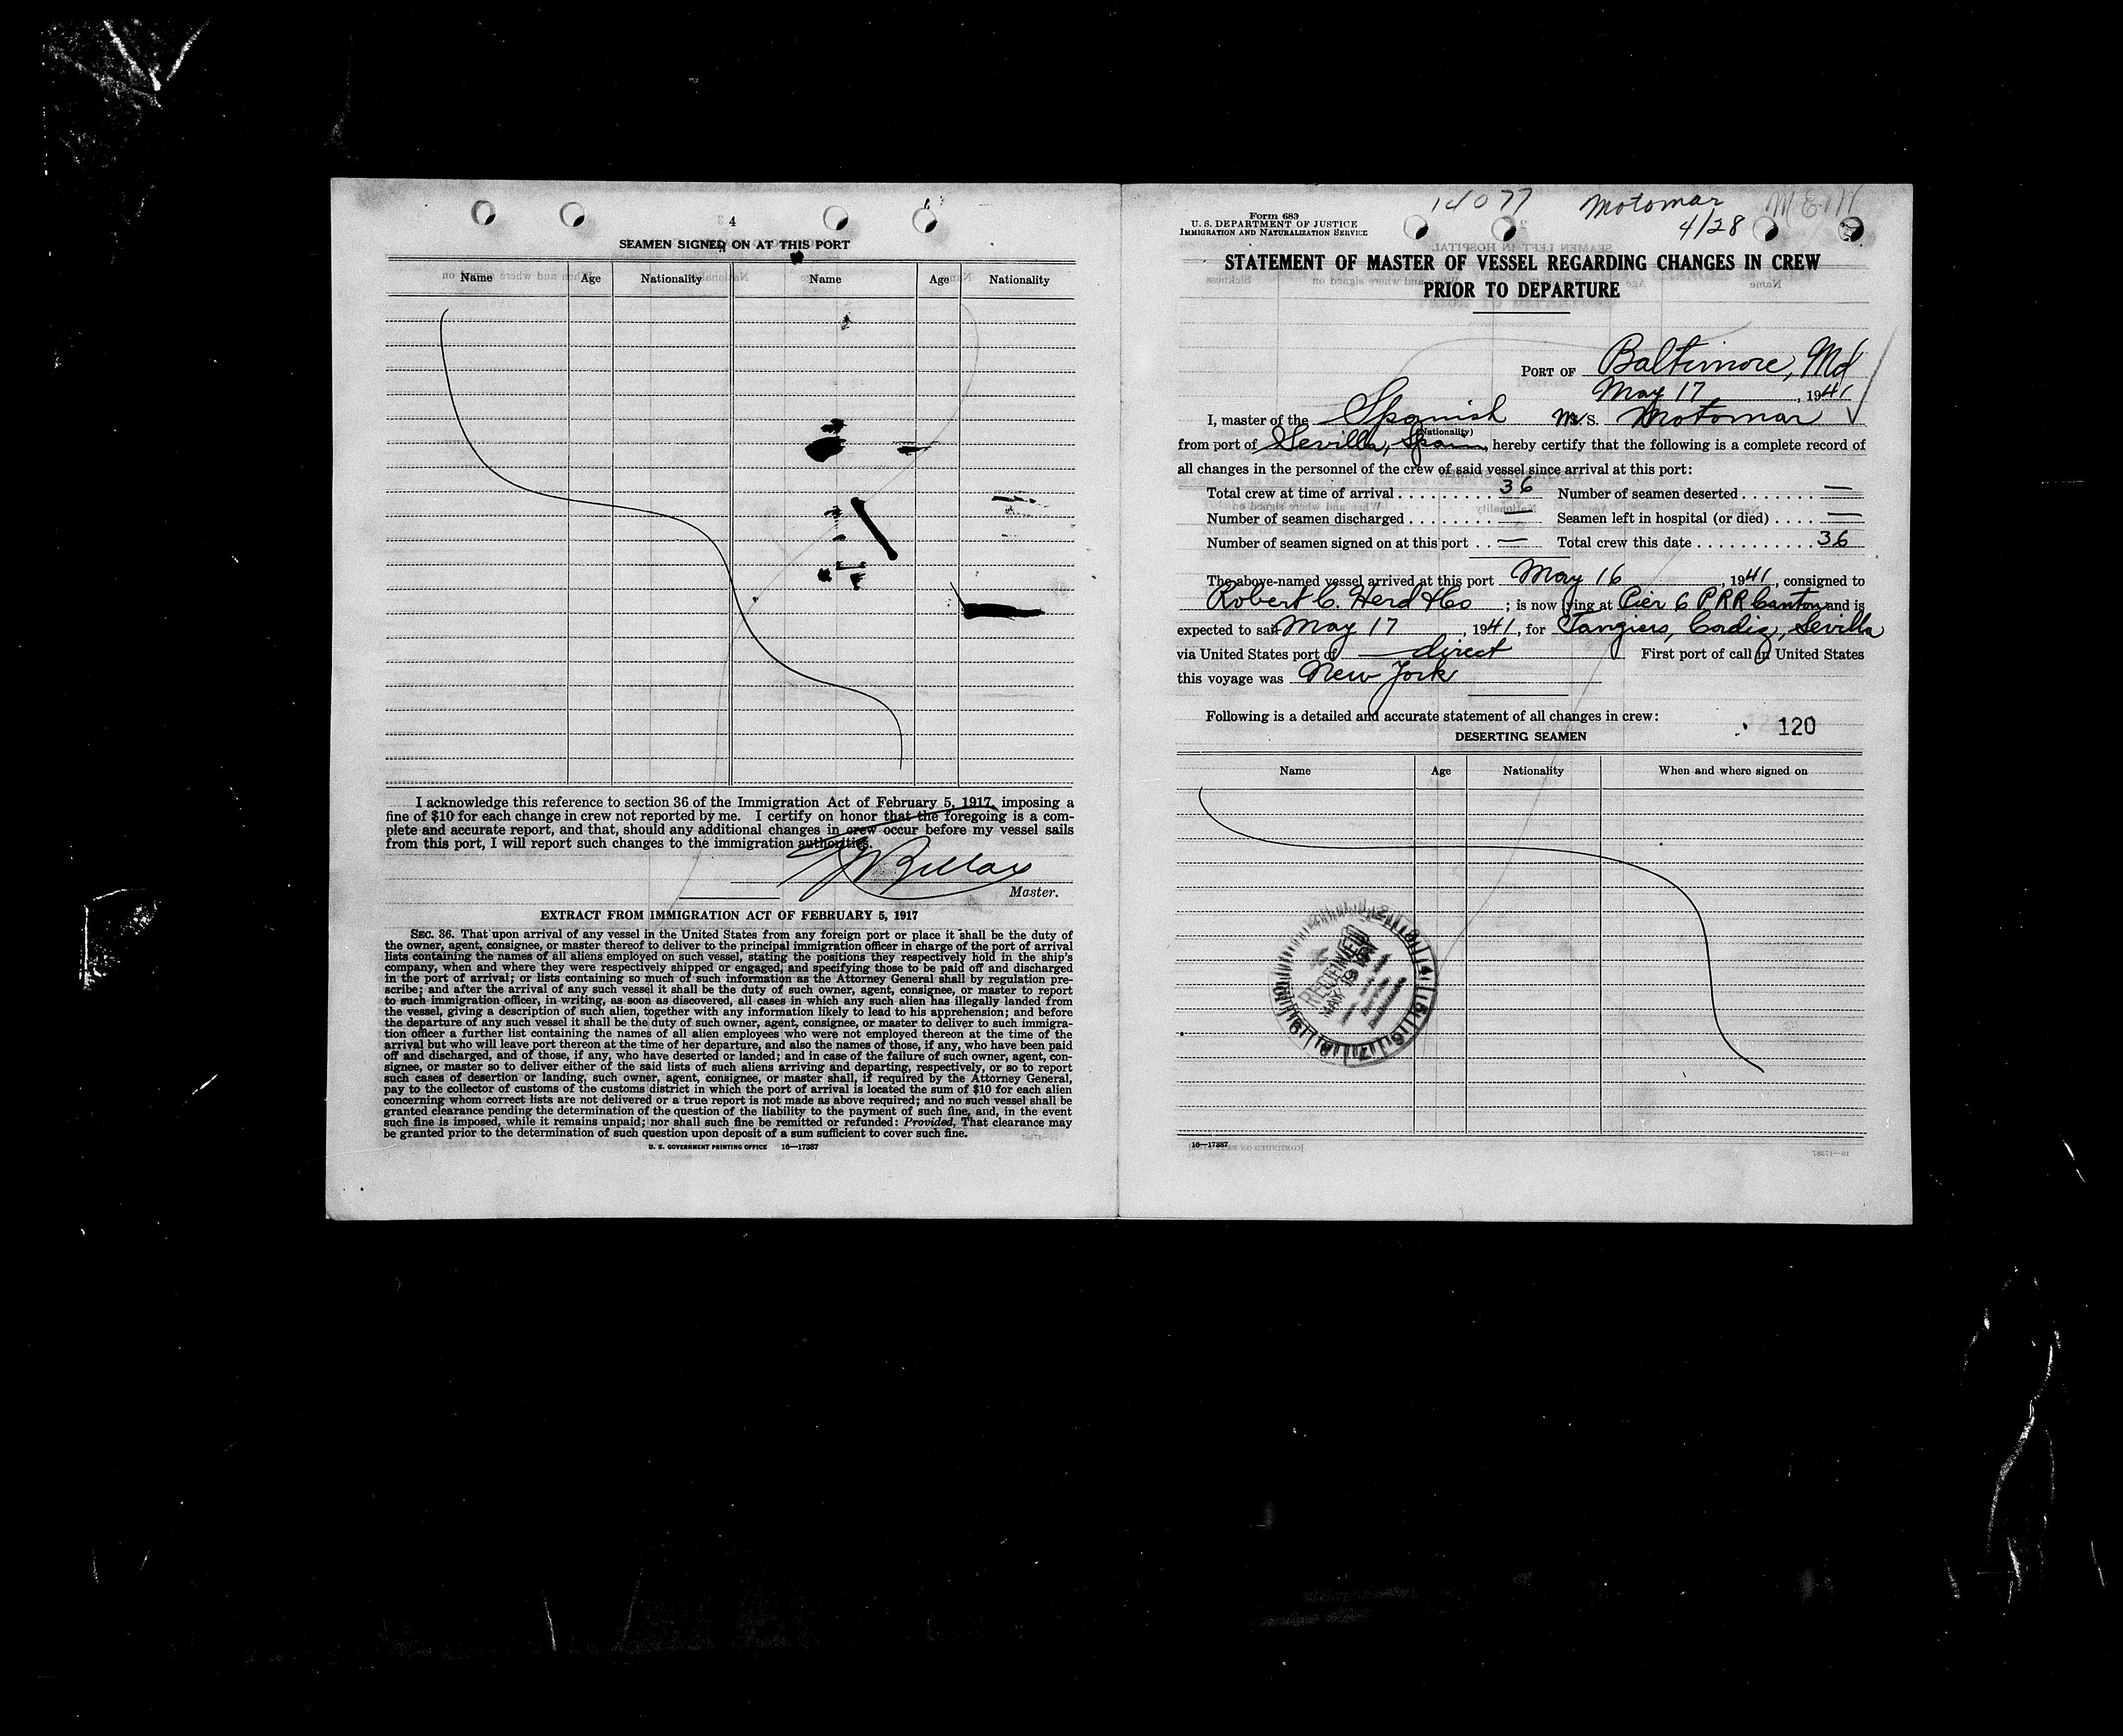 4
SEAMEN SIGNED ON AT THIS PORT
Name Age Nationality Name Age Nationality
I acknowledge this reference to section 36 of the Immigration Act of February 5, 1917, imposing a
fine of $10 for each change in crew not reported by me. I certify on honor that the foregoing is a com-
plete and accurate report, and that, should any additional changes in crew occur before my vessel sails
from this port, I will report such changes to the immigration authorities.
Master.
EXTRACT FROM IMMIGRATION ACT OF FEBRUARY 5, 1917
SEC. 36. That upon arrival of any vessel in the United States from any foreign port or place it shall be the duty of
the owner, agent, consignee, or master thereof to deliver to the principal immigration officer in charge of the port of arrival
lists containing the names of all aliens employed on such vessel, stating the positions they respectively hold in the ship's
company, when and where they were respectively shipped or engaged, and specifying those to be paid off and discharged
in the port of arrival; or lists containing so much of such information as the Attorney General shall by regulation pre-
scribe; and after the arrival of any such vessel it shall be the duty of such owner, agent, consignee, or master to report
to such immigration officer, in writing, as soon as discovered, all cases in which any such alien has illegally landed from
the vessel, giving a description of such alien, together with any information likely to lead to his apprehension; and before
the departure of any such vessel it shall be the duty of such owner, agent, consignee, or master to deliver to such immigra-
tion officer a further list containing the names of all alien employees who were not employed thereon at the time of the
arrival but who will leave port thereon at the time of her departure, and also the names of those, if any, who have been paid
off and discharged, and of those, if any, who have deserted or landed; and in case of the failure of such owner, agent, con-
signee, or master so to deliver either of the said lists of such aliens arriving and departing, respectively, or so to report
such cases of desertion or landing, such owner, agent, consignee, or master shall, if required by the Attorney General,
pay to the collector of customs of the customs district in which the port of arrival is located the sum of $10 for each alien
concerning whom correct lists are not delivered or a true report is not made as above required; and no such vessel shall be
granted clearance pending the determination of the question of the liability to the payment of such fine, and, in the event
such fine is imposed, while it remains unpaid; nor shall such fine be remitted or refunded: Provided, That clearance may
be granted prior to the determination of such question upon deposit of a sum sufficient to cover such fine.
U. S. GOVERNMENT PRINTING OFFICE 16—17387
14077 Motomar MEM
4/28
Form 689
U. S. DEPARTMENT OF JUSTICE
IMMIGRATION AND NATURALIZATION SERVICE
STATEMENT OF MASTER OF VESSEL REGARDING CHANGES IN CREW
PRIOR TO DEPARTURE
PORT OF Baltimore, Md
May 17, 1941
I, master of the Spanish M/S. Motomar
(Nationality)
from port of Sevilla, Spain, hereby certify that the following is a complete record of
all changes in the personnel of the crew of said vessel since arrival at this port:
Total crew at time of arrival . . . . . . . . . 36 Number of seamen deserted . . . . . . . —
Number of seamen discharged . . . . . . . . — Seamen left in hospital (or died) . . . . —
Number of seamen signed on at this port . . — Total crew this date . . . . . . . . . . . 36
The above-named vessel arrived at this port May 16, 1941, consigned to
Robert C. Herd & Co ; is now lying at Pier 6 PRR Canton and is
expected to sail May 17, 1941, for Tangiers, Cadiz, Sevilla
via United States port of direct First port of call in United States
this voyage was New York
Following is a detailed and accurate statement of all changes in crew:
120
DESERTING SEAMEN
Name Age Nationality When and where signed on
RECEIVED
MAY 19 1941
16—17387